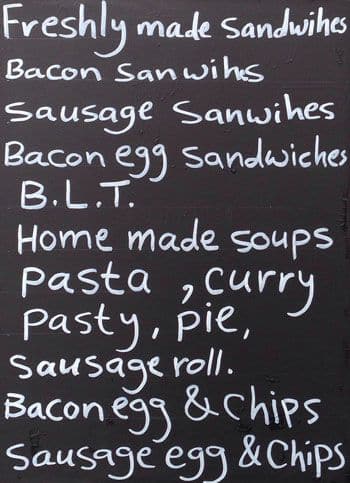 Freshly made Sandwihes
Bacon Sanwihs
Sausage Sanwihes
Bacon egg Sandwiches
B.L.T.
Home made soups
Pasta , curry
Pasty, pie,
Sausage roll.
Bacon egg & chips
Sausage egg & Chips